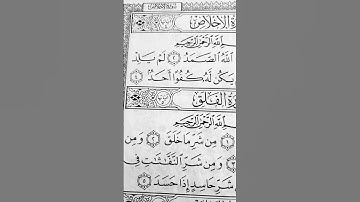 سُورَةُ الإِخْلَاصِ
ةُ الإِخْلَاصِ
بِسْمِ اللَّهِ الرَّحْمَٰنِ الرَّحِيمِ
اللَّهُ الصَّمَدُ ٢ لَمْ يَلِدْ
يَكُن لَّهُ كُفُوًا أَحَدٌ ٤
ةُ الفَلَقِ
بِسْمِ اللَّهِ الرَّحْمَٰنِ الرَّحِيمِ
١ مِن شَرِّ مَا خَلَقَ ٢ وَمِن
٣ وَمِن شَرِّ النَّفَّاثَاتِ فِي
شَرِّ حَاسِدٍ إِذَا حَسَدَ ٥